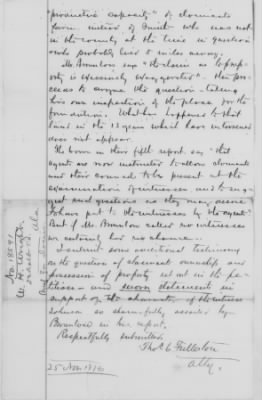 "productive capacity" of claimants
farm instead of Smith who was not
in the county at the time in question
who probably lived 10 miles away.
Mr. Brownlow says "the claim as to property
is excessively exaggerated". He proceeds
to argue the question taking
his own inspection of the place for the
foundation. What has happened to that
land in the 13 years which have intervened
does not appear.
The Comrs in their fifth report say "that
agents are now instructed to allow claimants
and their counsel to be present at the
examination of witnesses, and to suggest
such questions as they may desire
to have put to the witnesses by the agent".
But if Mr. Brownlow called new witnesses
we certainly had no chance.
I submit some additional testimony
on the question of claimant ownership and
possession of property set out in the petition
and sworn statement in
support of the character of the witness
Johnson so shamefully assailed by
Brownlow in his report.
Respectfully submitted
Thos. C. Fullerton
Atty.
25 Nov. 1876
No. 18591
W. H. Wright